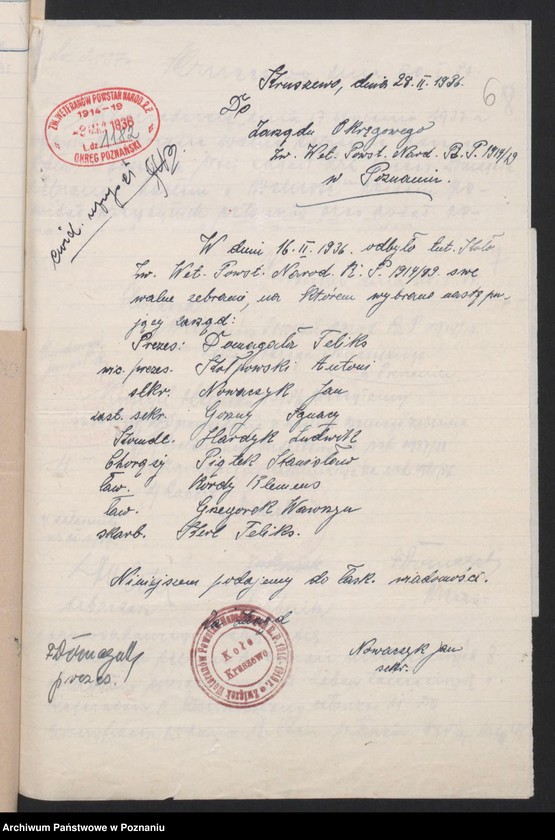 Kruszewo, dnia 28. II. 1936.
6
Do
Zarządu Okręgowego
Zw. Wet. Powst. Narod. R. P. 1914/19
w Poznaniu.
ZW. WETERANÓW POWSTAŃ NAROD. R.P.
1914-19
1936
L.dz. 1182
OKRĘG POZNAŃSKI
W dniu 16. II. 1936. odbyło tut. Koło
Zw. Wet. Powst. Narod. R. P. 1914/19. swe
walne zebranie, na którem wybrano nastę pu-
jący zarząd:
Prezes: Domagała Feliks
wic. prezes. Antoni
sekr. Nowaczyk Jan
zast. sekr. Górny Ignacy
Komdt. Hardyk Ludwik
Chorąży Piątek Stanisław
ław. Kórdy Klemens
ław. Grzegorek Wawrzyn
skarb. Feliks.
Niniejszem podajemy do łask. wiadomości.
Za Zarząd
Związek Weteranów Powstań Narod. R.P. 1914-1919 r.
Koło
Kruszewo
F Domagała
prezes.
Nowaczyk Jan
sekr.
Archiwum Państwowe w Poznaniu